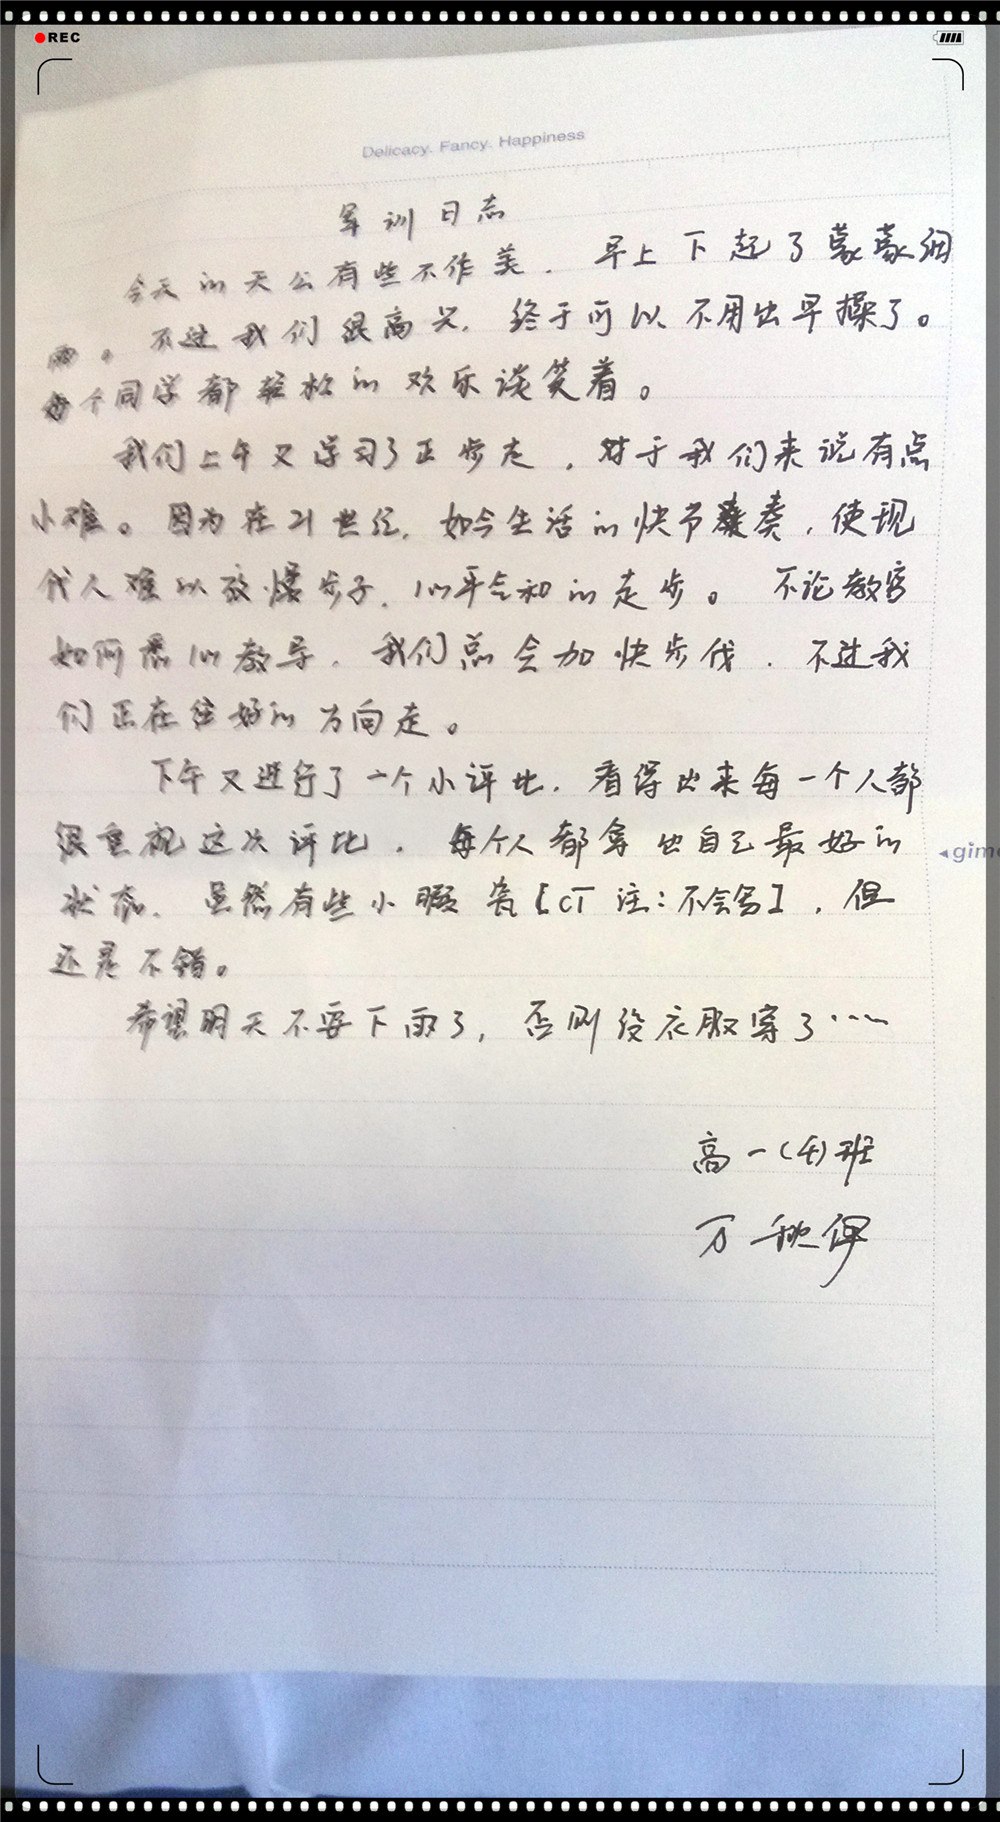 REC
Delicacy. Fancy. Happiness
军训日志
今天的天公有些不作美，早上下起了蒙蒙细
雨。不过我们很高兴，终于可以不用出早操了。
每个同学都轻松的欢乐谈笑着。
我们上午又学习了正步走，对于我们来说有点
小难。因为在21世纪，如今生活的快节奏，使现
代人难以放慢步子，心平气和的走步。不论教官
如何悉心教导，我们总会加快步伐，不过我
们正在往好的方向走。
下午又进行了一个小评比，看得出来每一个人都
很重视这次评比，每个人都拿出自己最好的
状态，虽然有些小暇疵【CT注：不会写】，但
还是不错。
希望明天不要下雨了，否则没衣服穿了……
高一(4)班
万秋